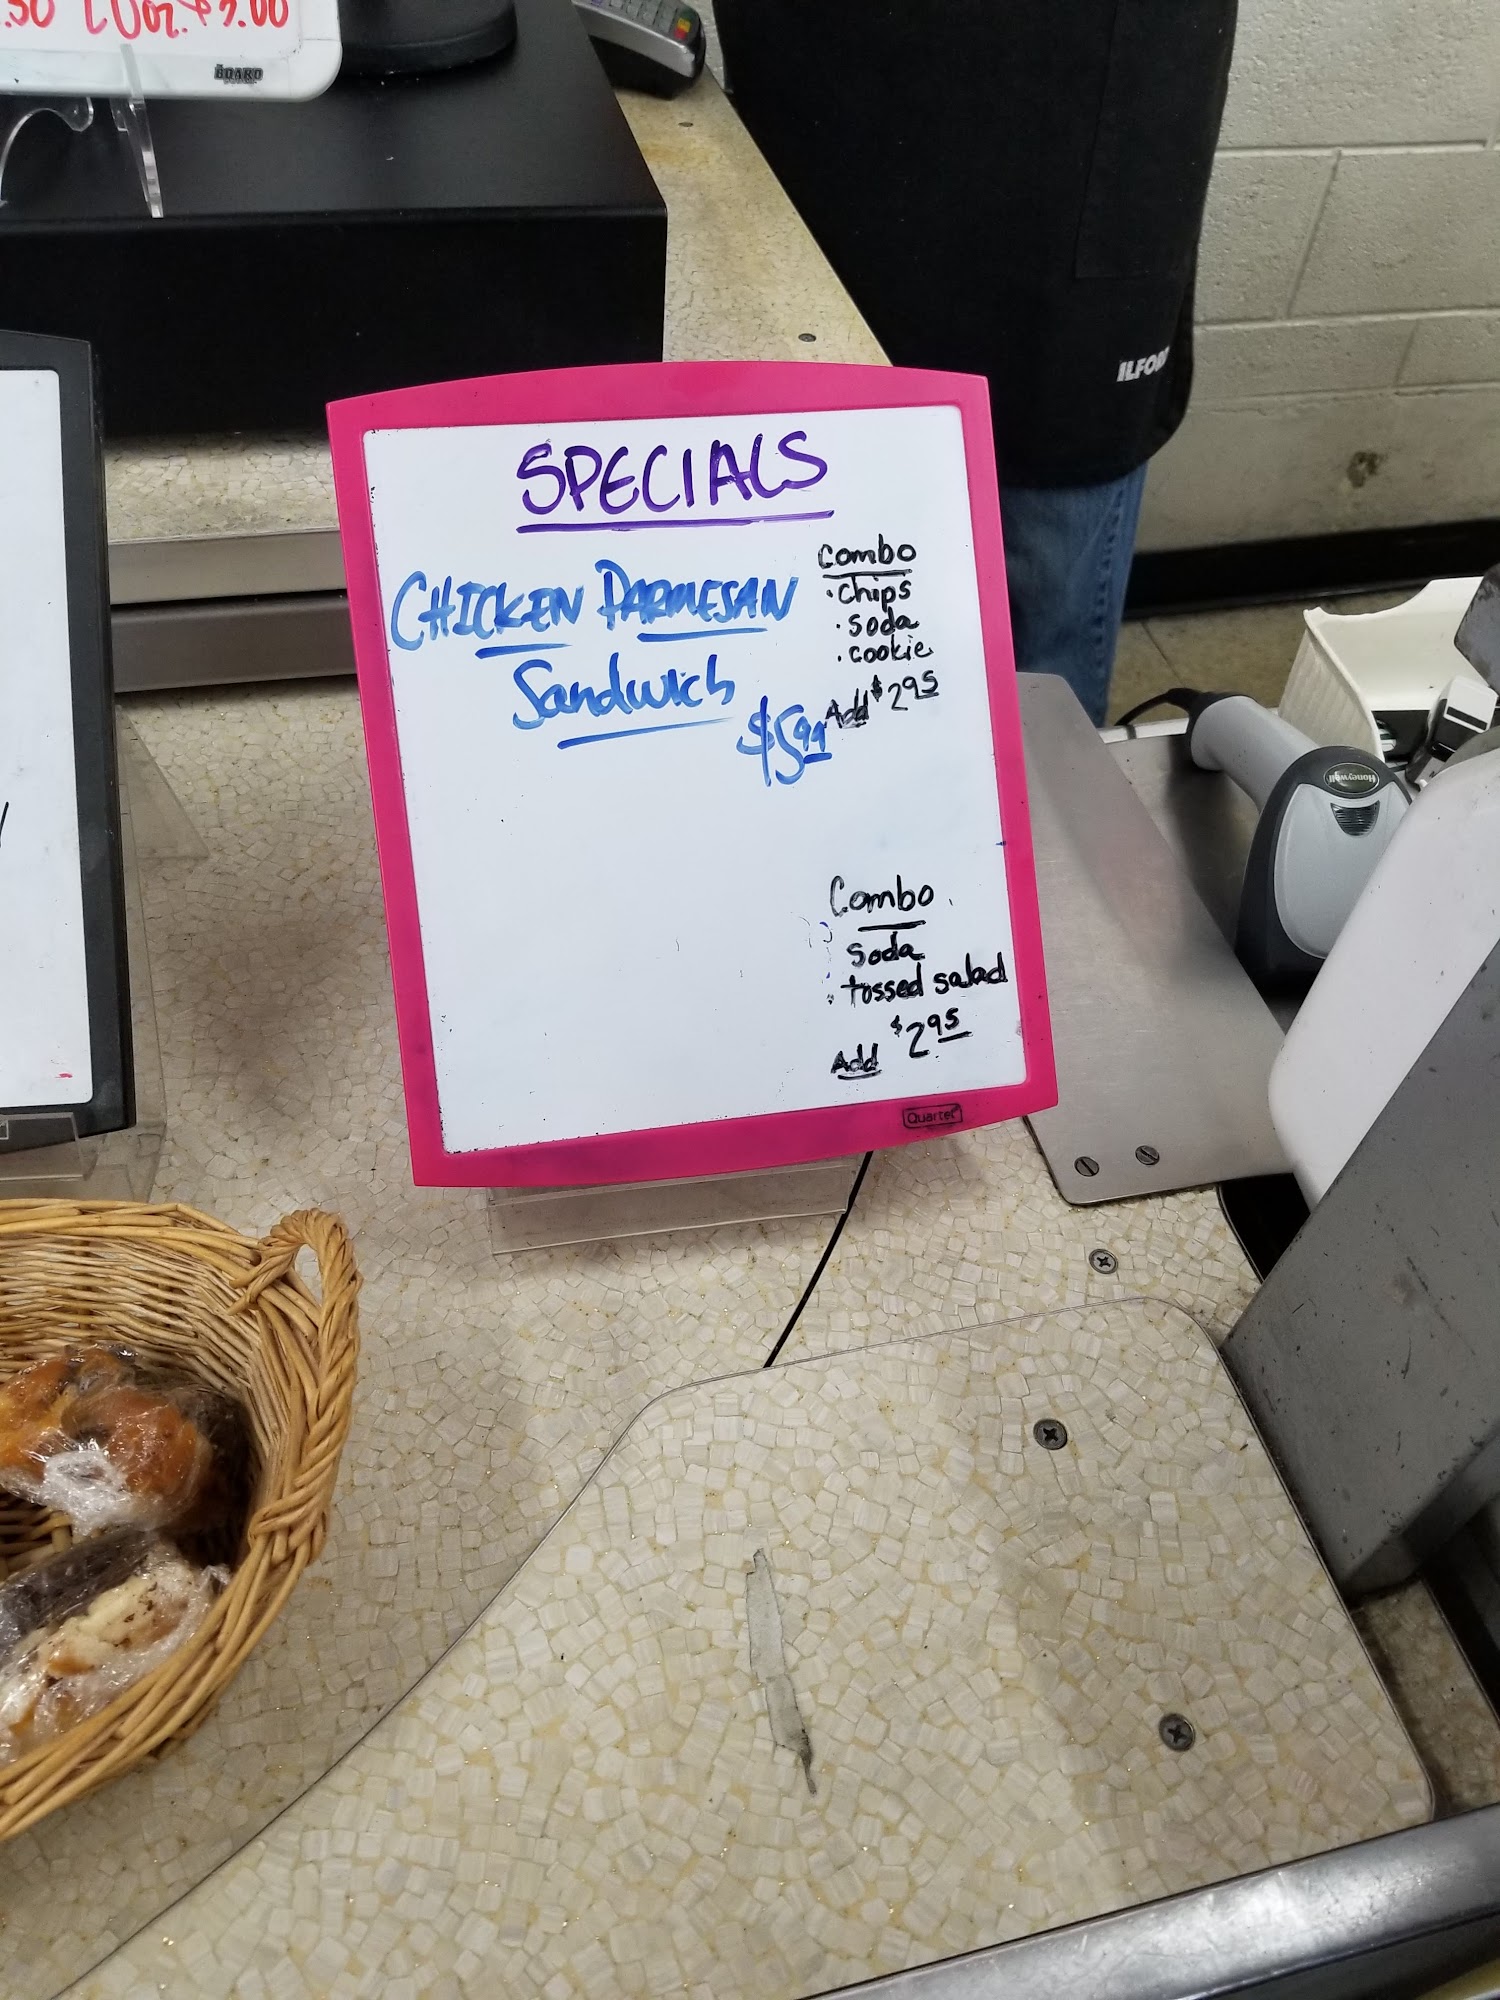 BOARD
ILFORD
SPECIALS
CHICKEN PARMESAN
Sandwich
$5.99
Combo
· Chips
· soda
· cookie
Add $2.95
Combo
soda
· tossed salad
$2.95
Add
Quartet
Honeywell